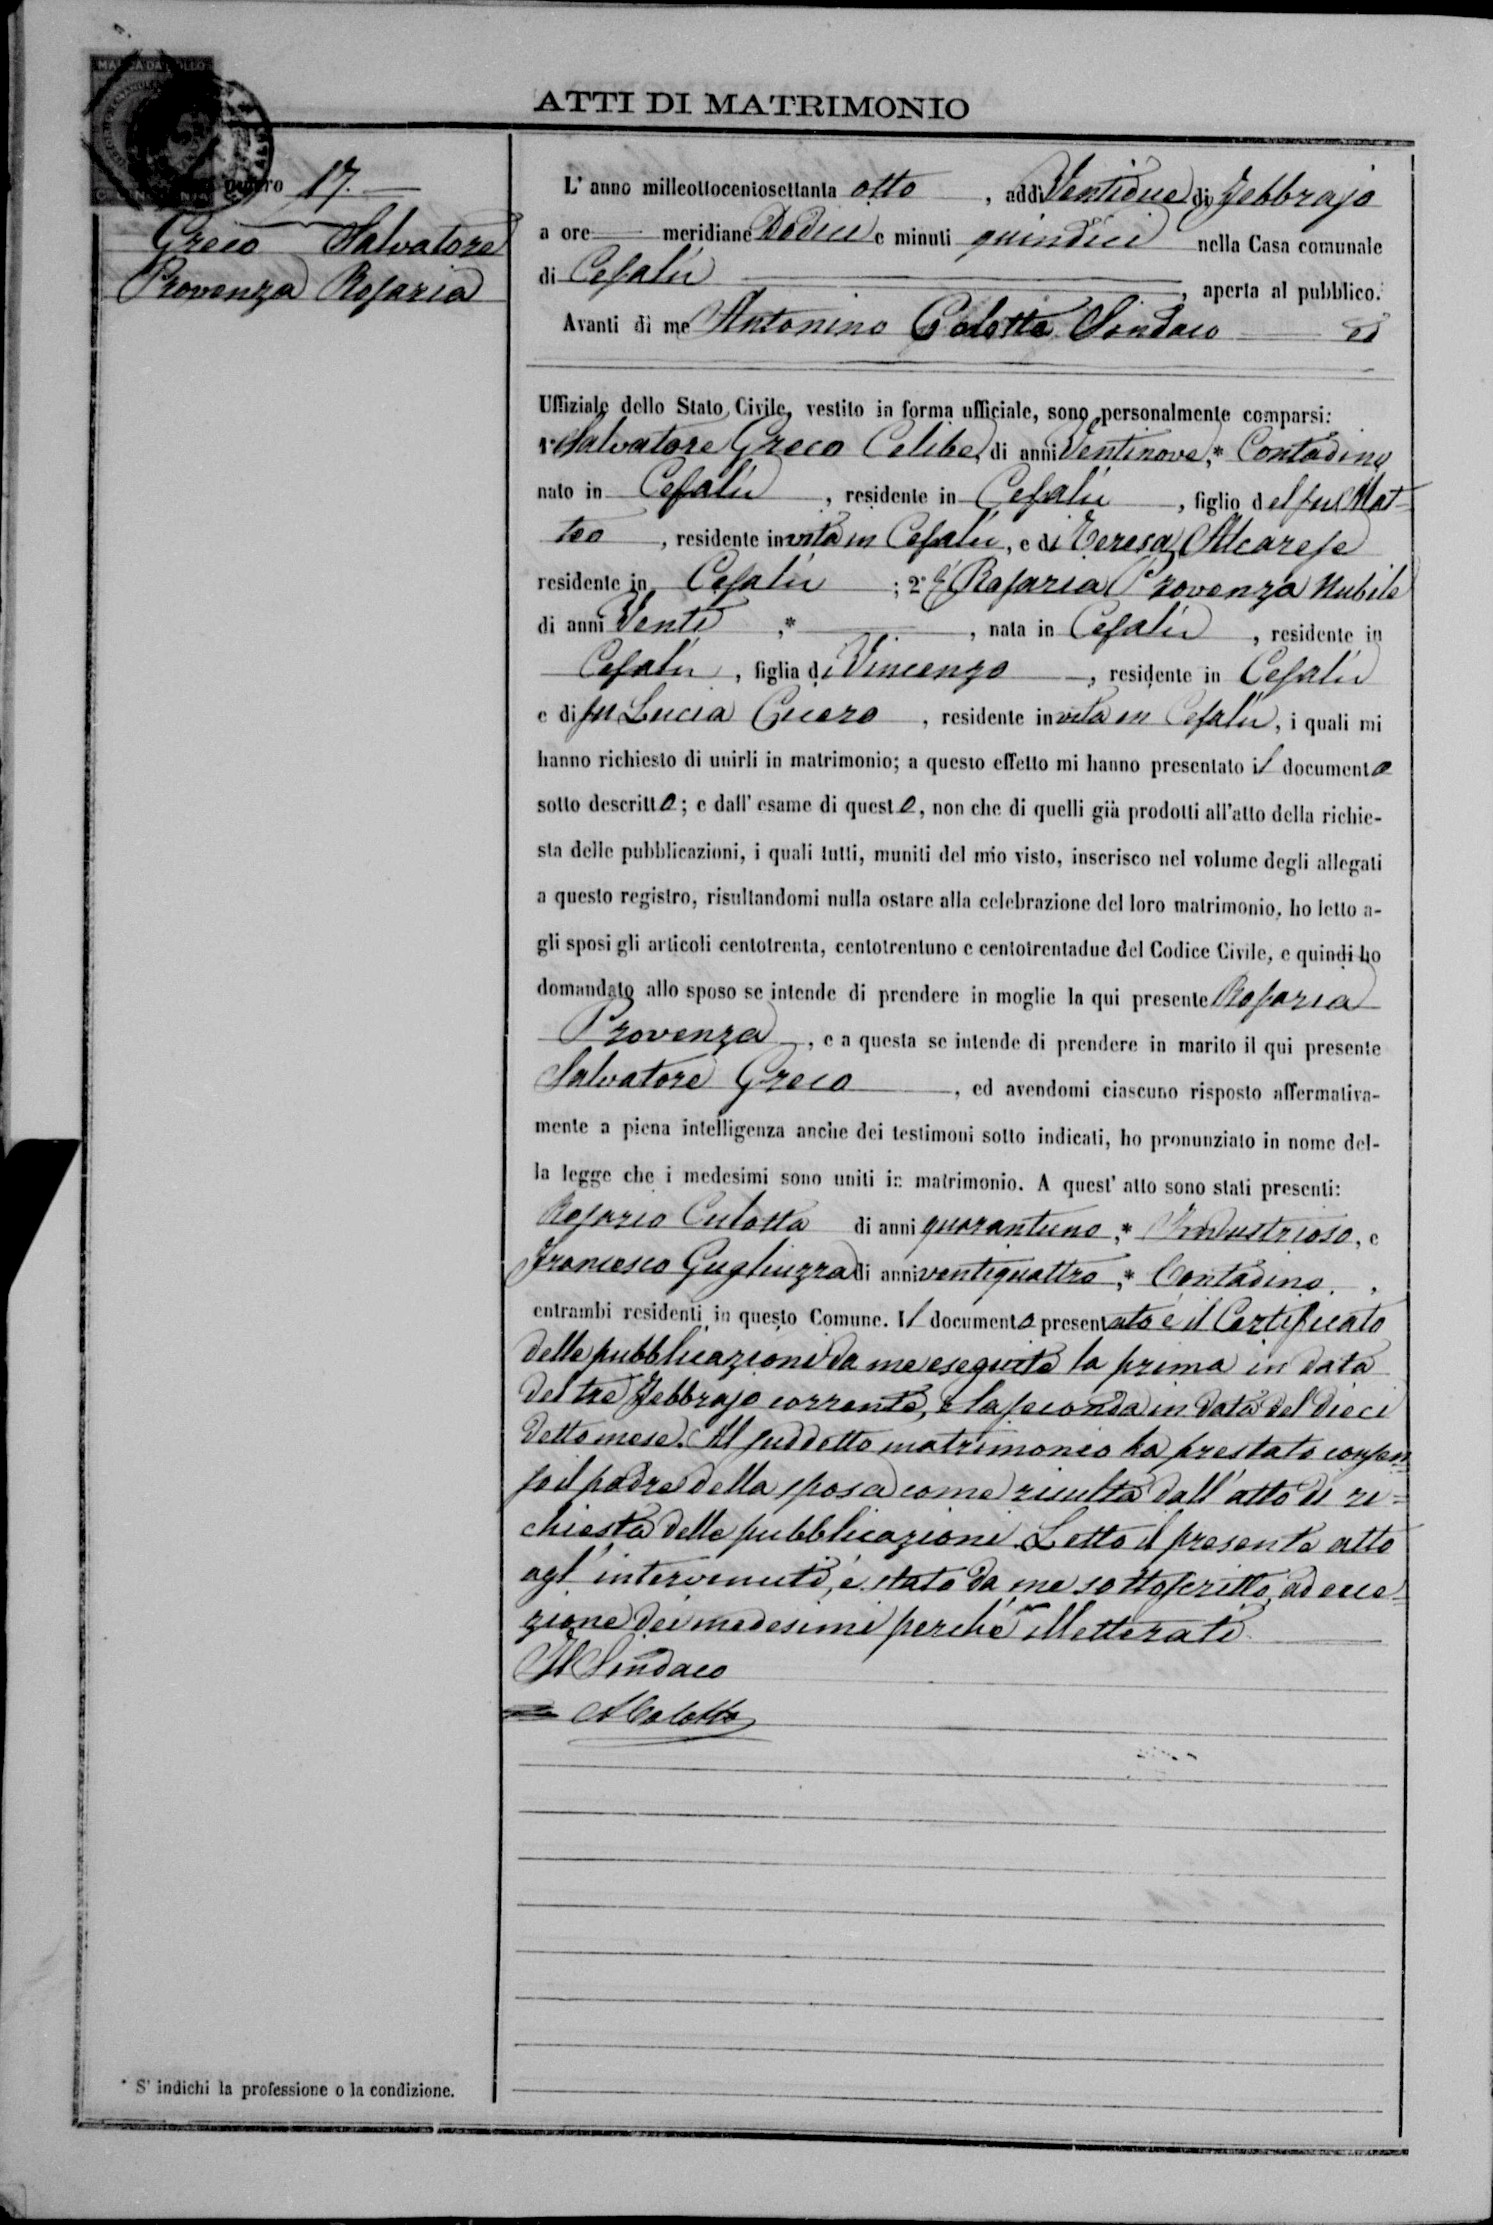 MARCA DA BOLLO
ATTI DI MATRIMONIO
17.
Greco Salvatore
Provenza Rosaria
L' anno milleottocentosettanta otto, addì Ventidue di Febbrajo
a ore meridiane Dodici e minuti quindici nella Casa comunale
di Cefalù, aperta al pubblico.
Avanti di me Antonino Colotta Sindaco ed
Uffiziale dello Stato Civile, vestito in forma ufficiale, sono personalmente comparsi:
1° Salvatore Greco Celibe, di anni Ventinove,* Contadino
nato in Cefalù, residente in Cefalù, figlio del fu Mat-
teo, residente in vita in Cefalù, e di Teresa Alcarese
residente in Cefalù; 2° Rosaria Provenza Nubile
di anni Venti,*, nata in Cefalù, residente in
Cefalù, figlia di Vincenzo, residente in Cefalù
e di fu Lucia Cicero, residente in vita in Cefalù, i quali mi
hanno richiesto di unirli in matrimonio; a questo effetto mi hanno presentato il documento
sotto descritto; e dall' esame di questo, non che di quelli già prodotti all'atto della richie-
sta delle pubblicazioni, i quali tutti, muniti del mio visto, inserisco nel volume degli allegati
a questo registro, risultandomi nulla ostare alla celebrazione del loro matrimonio, ho letto a-
gli sposi gli articoli centotrenta, centotrentuno e centotrentadue del Codice Civile, e quindi ho
domandato allo sposo se intende di prendere in moglie la qui presente Rosaria
Provenza, e a questa se intende di prendere in marito il qui presente
Salvatore Greco, ed avendomi ciascuno risposto affermativa-
mente a piena intelligenza anche dei testimoni sotto indicati, ho pronunziato in nome del-
la legge che i medesimi sono uniti in matrimonio. A quest' atto sono stati presenti:
Rosario Culotta di anni quarantuno,* Industrioso, e
Francesco Gugliuzza di anni ventiquattro,* Contadino,
entrambi residenti in questo Comune. Il documento presentato è il Certificato
delle pubblicazioni da me eseguite la prima in data
del tre Febbrajo corrente, e la seconda in data del dieci
detto mese. Al suddetto matrimonio ha prestato consen=
so il padre della sposa come risulta dall' atto di ri=
chiesta delle pubblicazioni. Letto il presente atto
agl' intervenuti, è stato da me sottoscritto, ad ecce=
zione dei medesimi perchè illetterati.
Il Sindaco
A Colotta
* S' indichi la professione o la condizione.